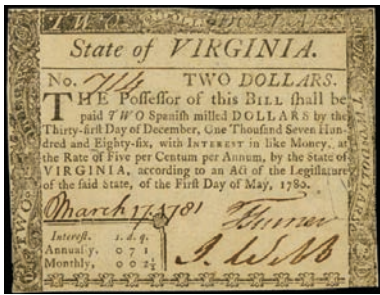 TWO DOLLARS
State of VIRGINIA.
No. 714 TWO DOLLARS.
THE Possessor of this BILL shall be
paid TWO Spanish milled DOLLARS by the
Thirty-first Day of December, One Thousand Seven Hun-
dred and Eighty-six, with INTEREST in like Money, at
the Rate of Five per Centum per Annum, by the State of
VIRGINIA, according to an Act of the Legislature
of the said State, of the First Day of May, 1780.
March 17. 1781
Interest. s. d. q.
Annually, 0 7 1
Monthly, 0 0 2½
J. Webb
TWO
TWO DOLLARS